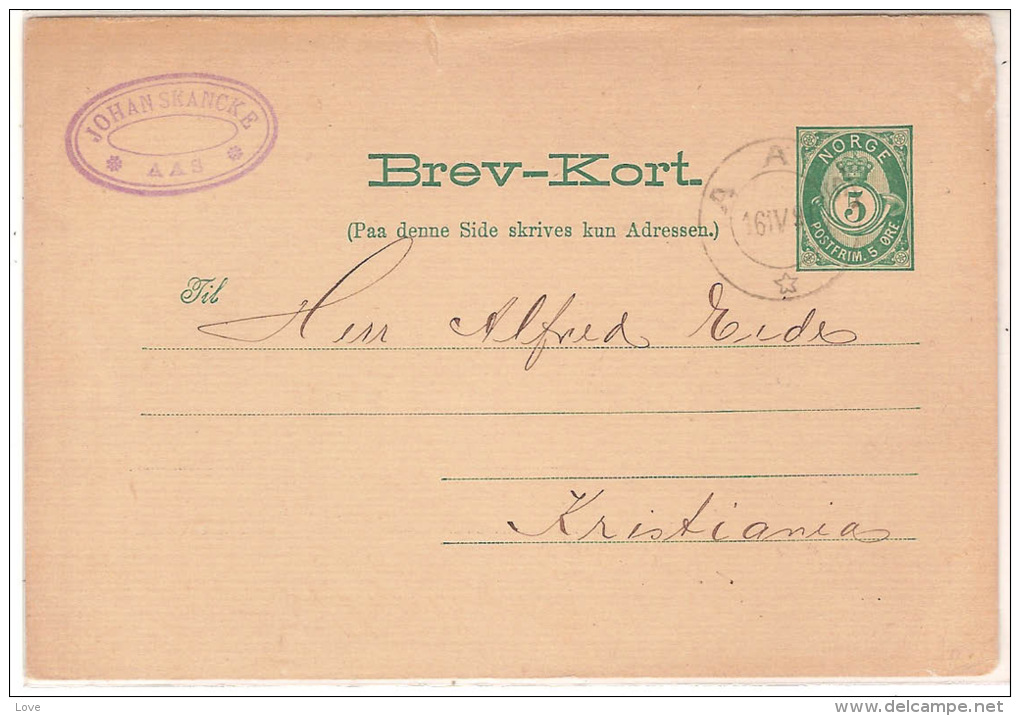 JOHAN SKANCKE
AAS
Brev-Kort.
(Paa denne Side skrives kun Adressen.)
NORGE
5
POSTFRIM. 5 ØRE
A A
16 IV
Til
Herr Alfred Eide
Kristiania
Love
delcampe.net